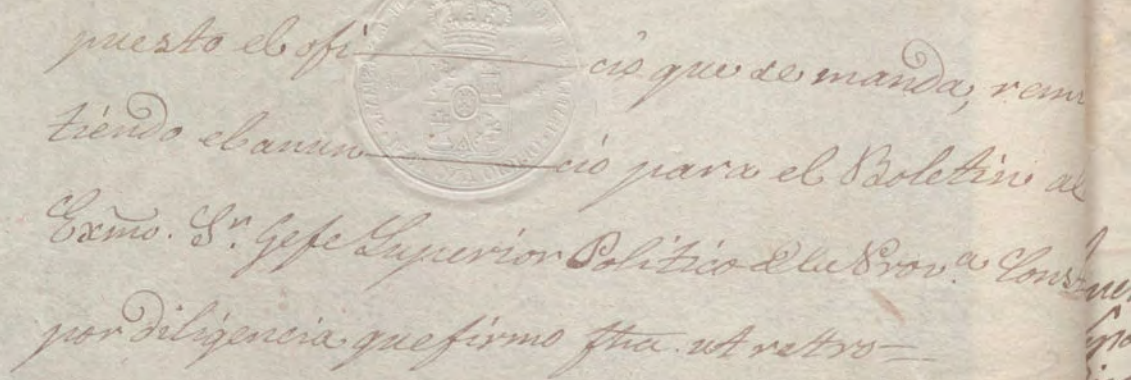 puesto el ofi———cio que se manda, remi
tiendo el anun———cio para el Boletin al
Exmo. Sr. Gefe Superior Politico de la Prov.a Const
por diligencia que firmo fha. ut retro=